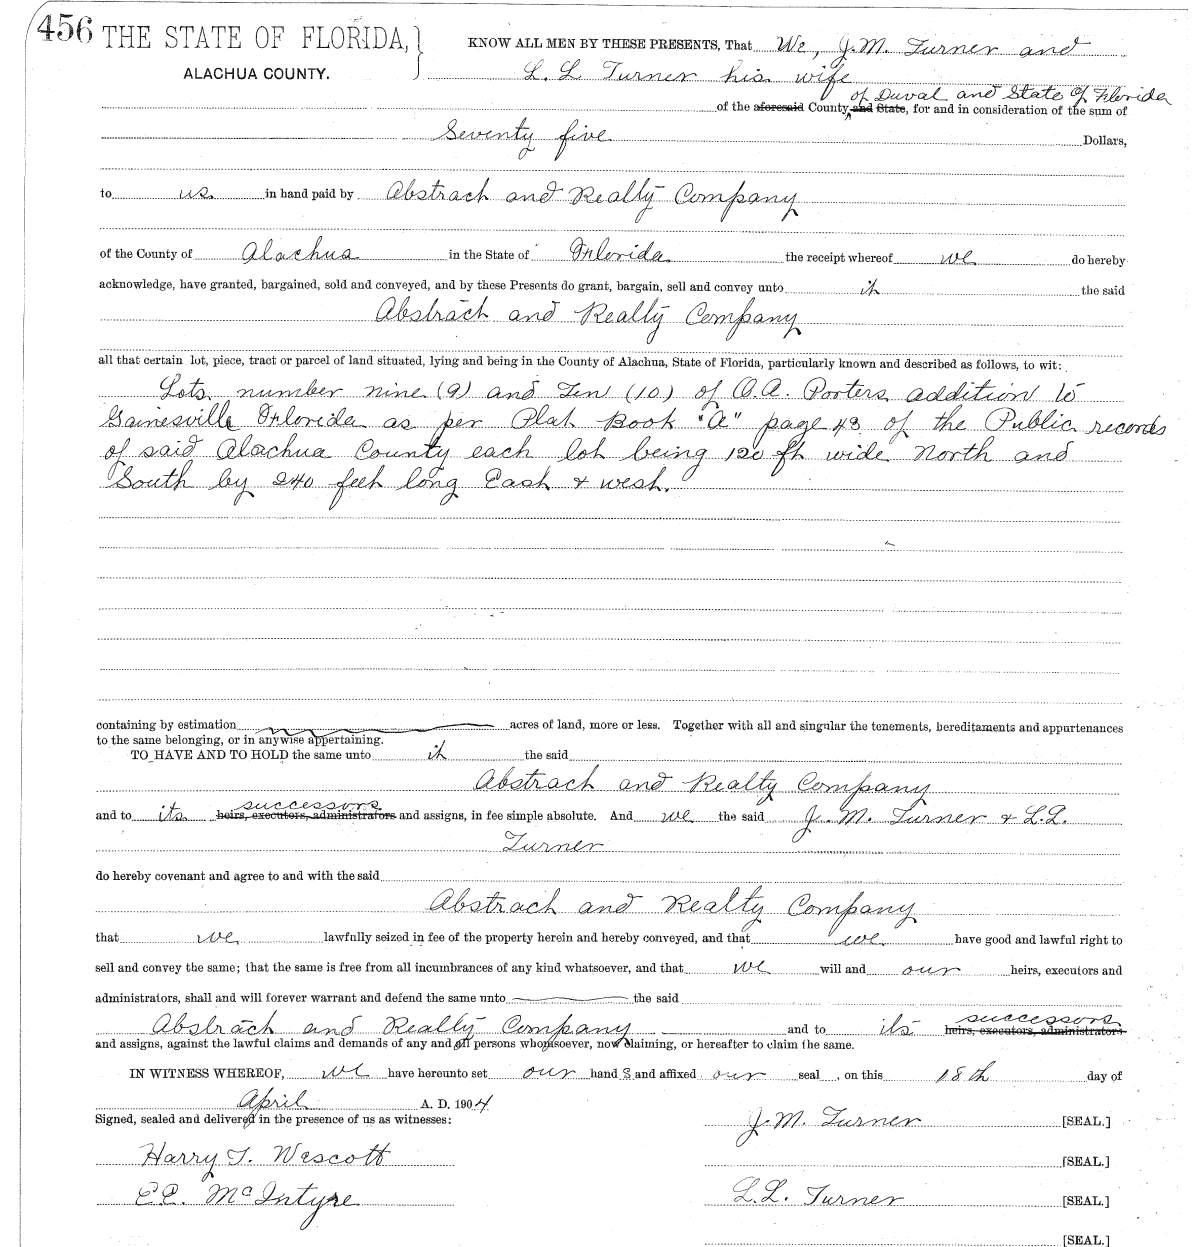 456 THE STATE OF FLORIDA, KNOW ALL MEN BY THESE PRESENTS, That We, J.M. Turner and
ALACHUA COUNTY. L. L Turner his wife
of Duval and State of Florida
of the aforesaid County and State, for and in consideration of the sum of
Seventy five Dollars,
to us in hand paid by Abstract and Realty Company
of the County of Alachua in the State of Florida the receipt whereof we do hereby
acknowledge, have granted, bargained, sold and conveyed, and by these Presents do grant, bargain, sell and convey unto it the said
Abstract and Realty Company
all that certain lot, piece, tract or parcel of land situated, lying and being in the County of Alachua, State of Florida, particularly known and described as follows, to wit:
Lots number nine (9) and Ten (10) of O.A. Porters addition to
Gainesville Florida as per Plat Book "A" page 43 of the Public records
of said Alachua County each lot being 120 ft wide North and
South by 240 feet long East & west.
containing by estimation acres of land, more or less. Together with all and singular the tenements, hereditaments and appurtenances
to the same belonging, or in anywise appertaining.
TO HAVE AND TO HOLD the same unto it the said
Abstract and Realty Company
successors
and to its heirs, executors, administrators and assigns, in fee simple absolute. And we the said J. M. Turner & L.L.
Turner
do hereby covenant and agree to and with the said
Abstract and Realty Company
that we lawfully seized in fee of the property herein and hereby conveyed, and that we have good and lawful right to
sell and convey the same; that the same is free from all incumbrances of any kind whatsoever, and that we will and our heirs, executors and
administrators, shall and will forever warrant and defend the same unto the said
successors
Abstract and Realty Company and to its heirs, executors, administrators
and assigns, against the lawful claims and demands of any and all persons whomsoever, now claiming, or hereafter to claim the same.
IN WITNESS WHEREOF, we have hereunto set our hand s and affixed our seal , on this 18th day of
April A. D. 1904
Signed, sealed and delivered in the presence of us as witnesses: J.M. Turner [SEAL.]
Harry T. Wescott [SEAL.]
E.C. McIntyre L.L. Turner [SEAL.]
[SEAL.]